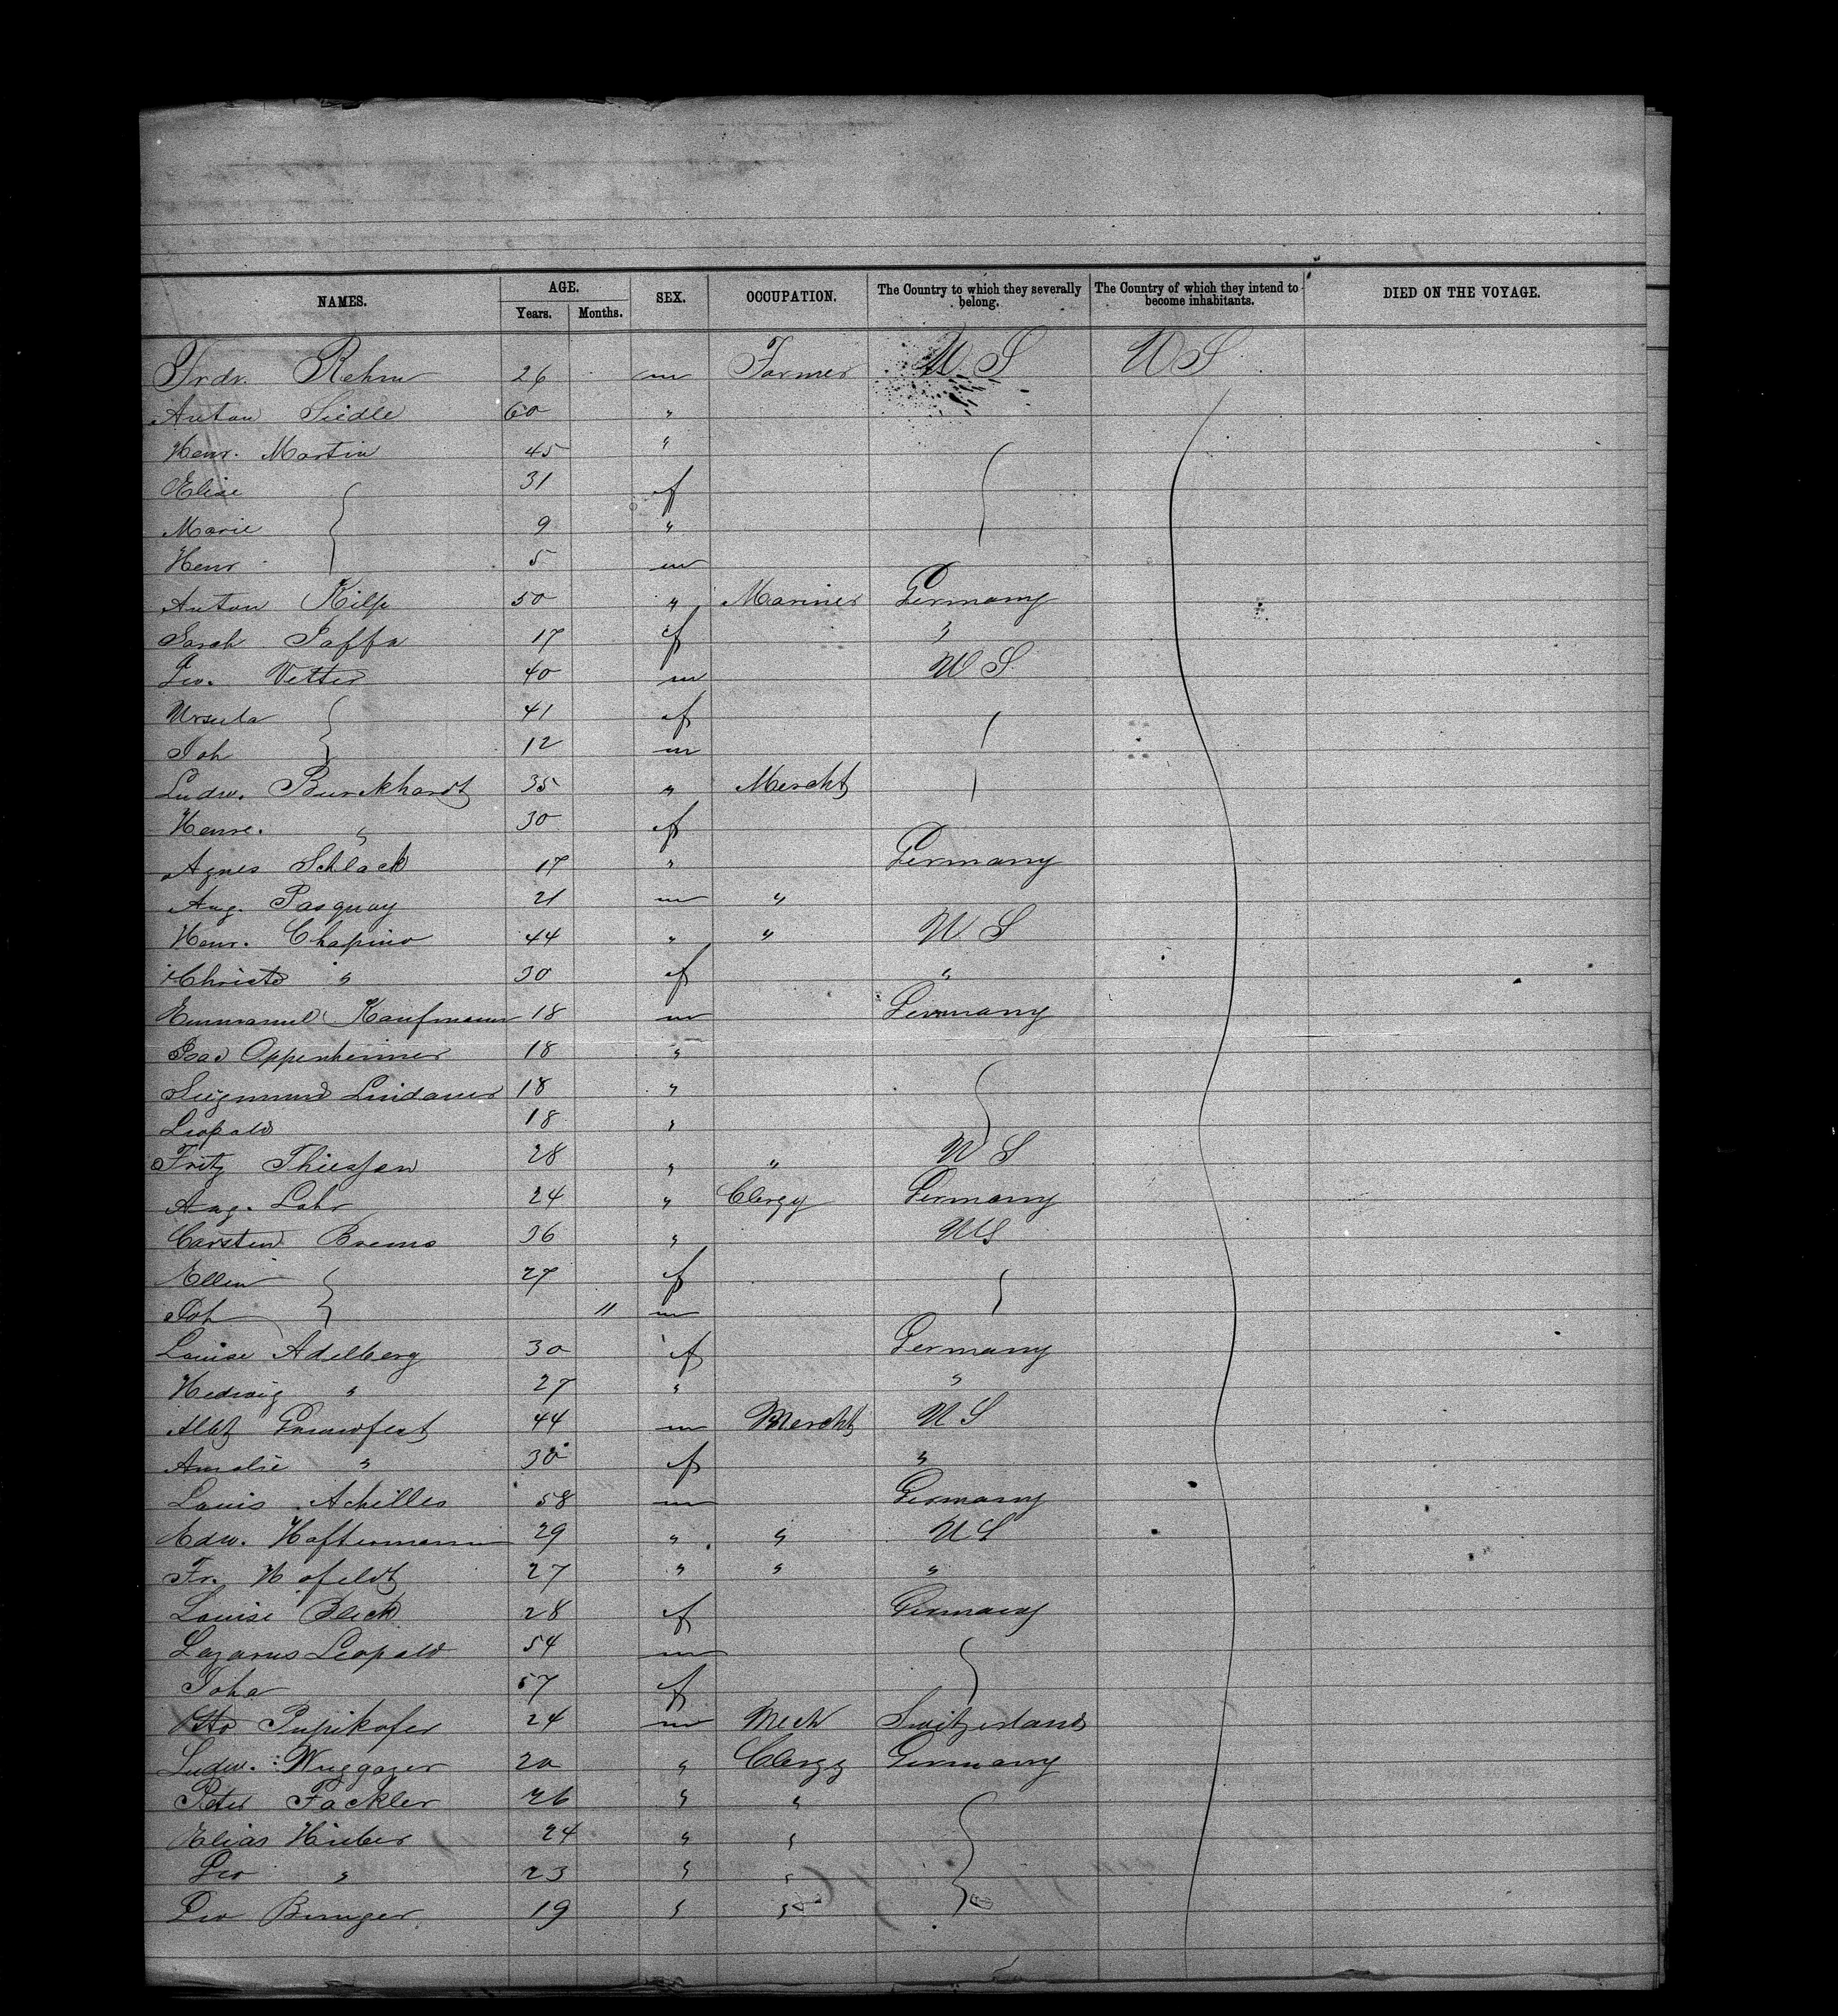 NAMES. AGE. SEX. OCCUPATION. The Country to which they severally belong. The Country of which they intend to become inhabitants. DIED ON THE VOYAGE.
Years. Months.
Frdr. Rehm 26 m Farmer U S U S
Anton Siedle 60 "
Henr. Martin 45 "
Elise 31 f
Marie 9 "
Henr 5 m
Anton Kilp 50 " Mariner Germany
Sarah Jaffa 17 f "
Geo. Vetter 40 m U S
Ursula 41 f
Joh 12 m
Ludw. Burckhardt 35 " Mercht
Henre. " 30 f
Agnes Schlack 17 " Germany
Aug. Pasquay 21 m "
Henr. Chapino 44 " " U S
Christe " 30 f "
Emmanuel Kaufmann 18 m Germany
Isac Oppenheimer 18 "
Siegmund Lindauer 18 "
Leopold 18 "
Fritz Thiessen 28 " " U S
Aug. Lohr 24 " Clergy Germany
Carsten Brems 36 " U S
Ellen 27 f
Joh 11 m
Louise Adelberg 30 f Germany
Hedwig " 27 " "
Albt 44 m Mercht U S
Amalie " 30 f "
Louis Achilles 58 m Germany
Edw. Haftermann 29 " " U S
Fr. Hofeldt 27 " " "
Louise Bleck 28 f Germany
Lazarus Leopold 54 m
Joha 57 f
Otto Pupikofer 24 m Mech Switzerland
Ludw. 20 " Clergy Germany
Peter Fackler 26 " "
Elias Hieber 24 " "
Geo " 23 " "
Geo Beringer 19 " "